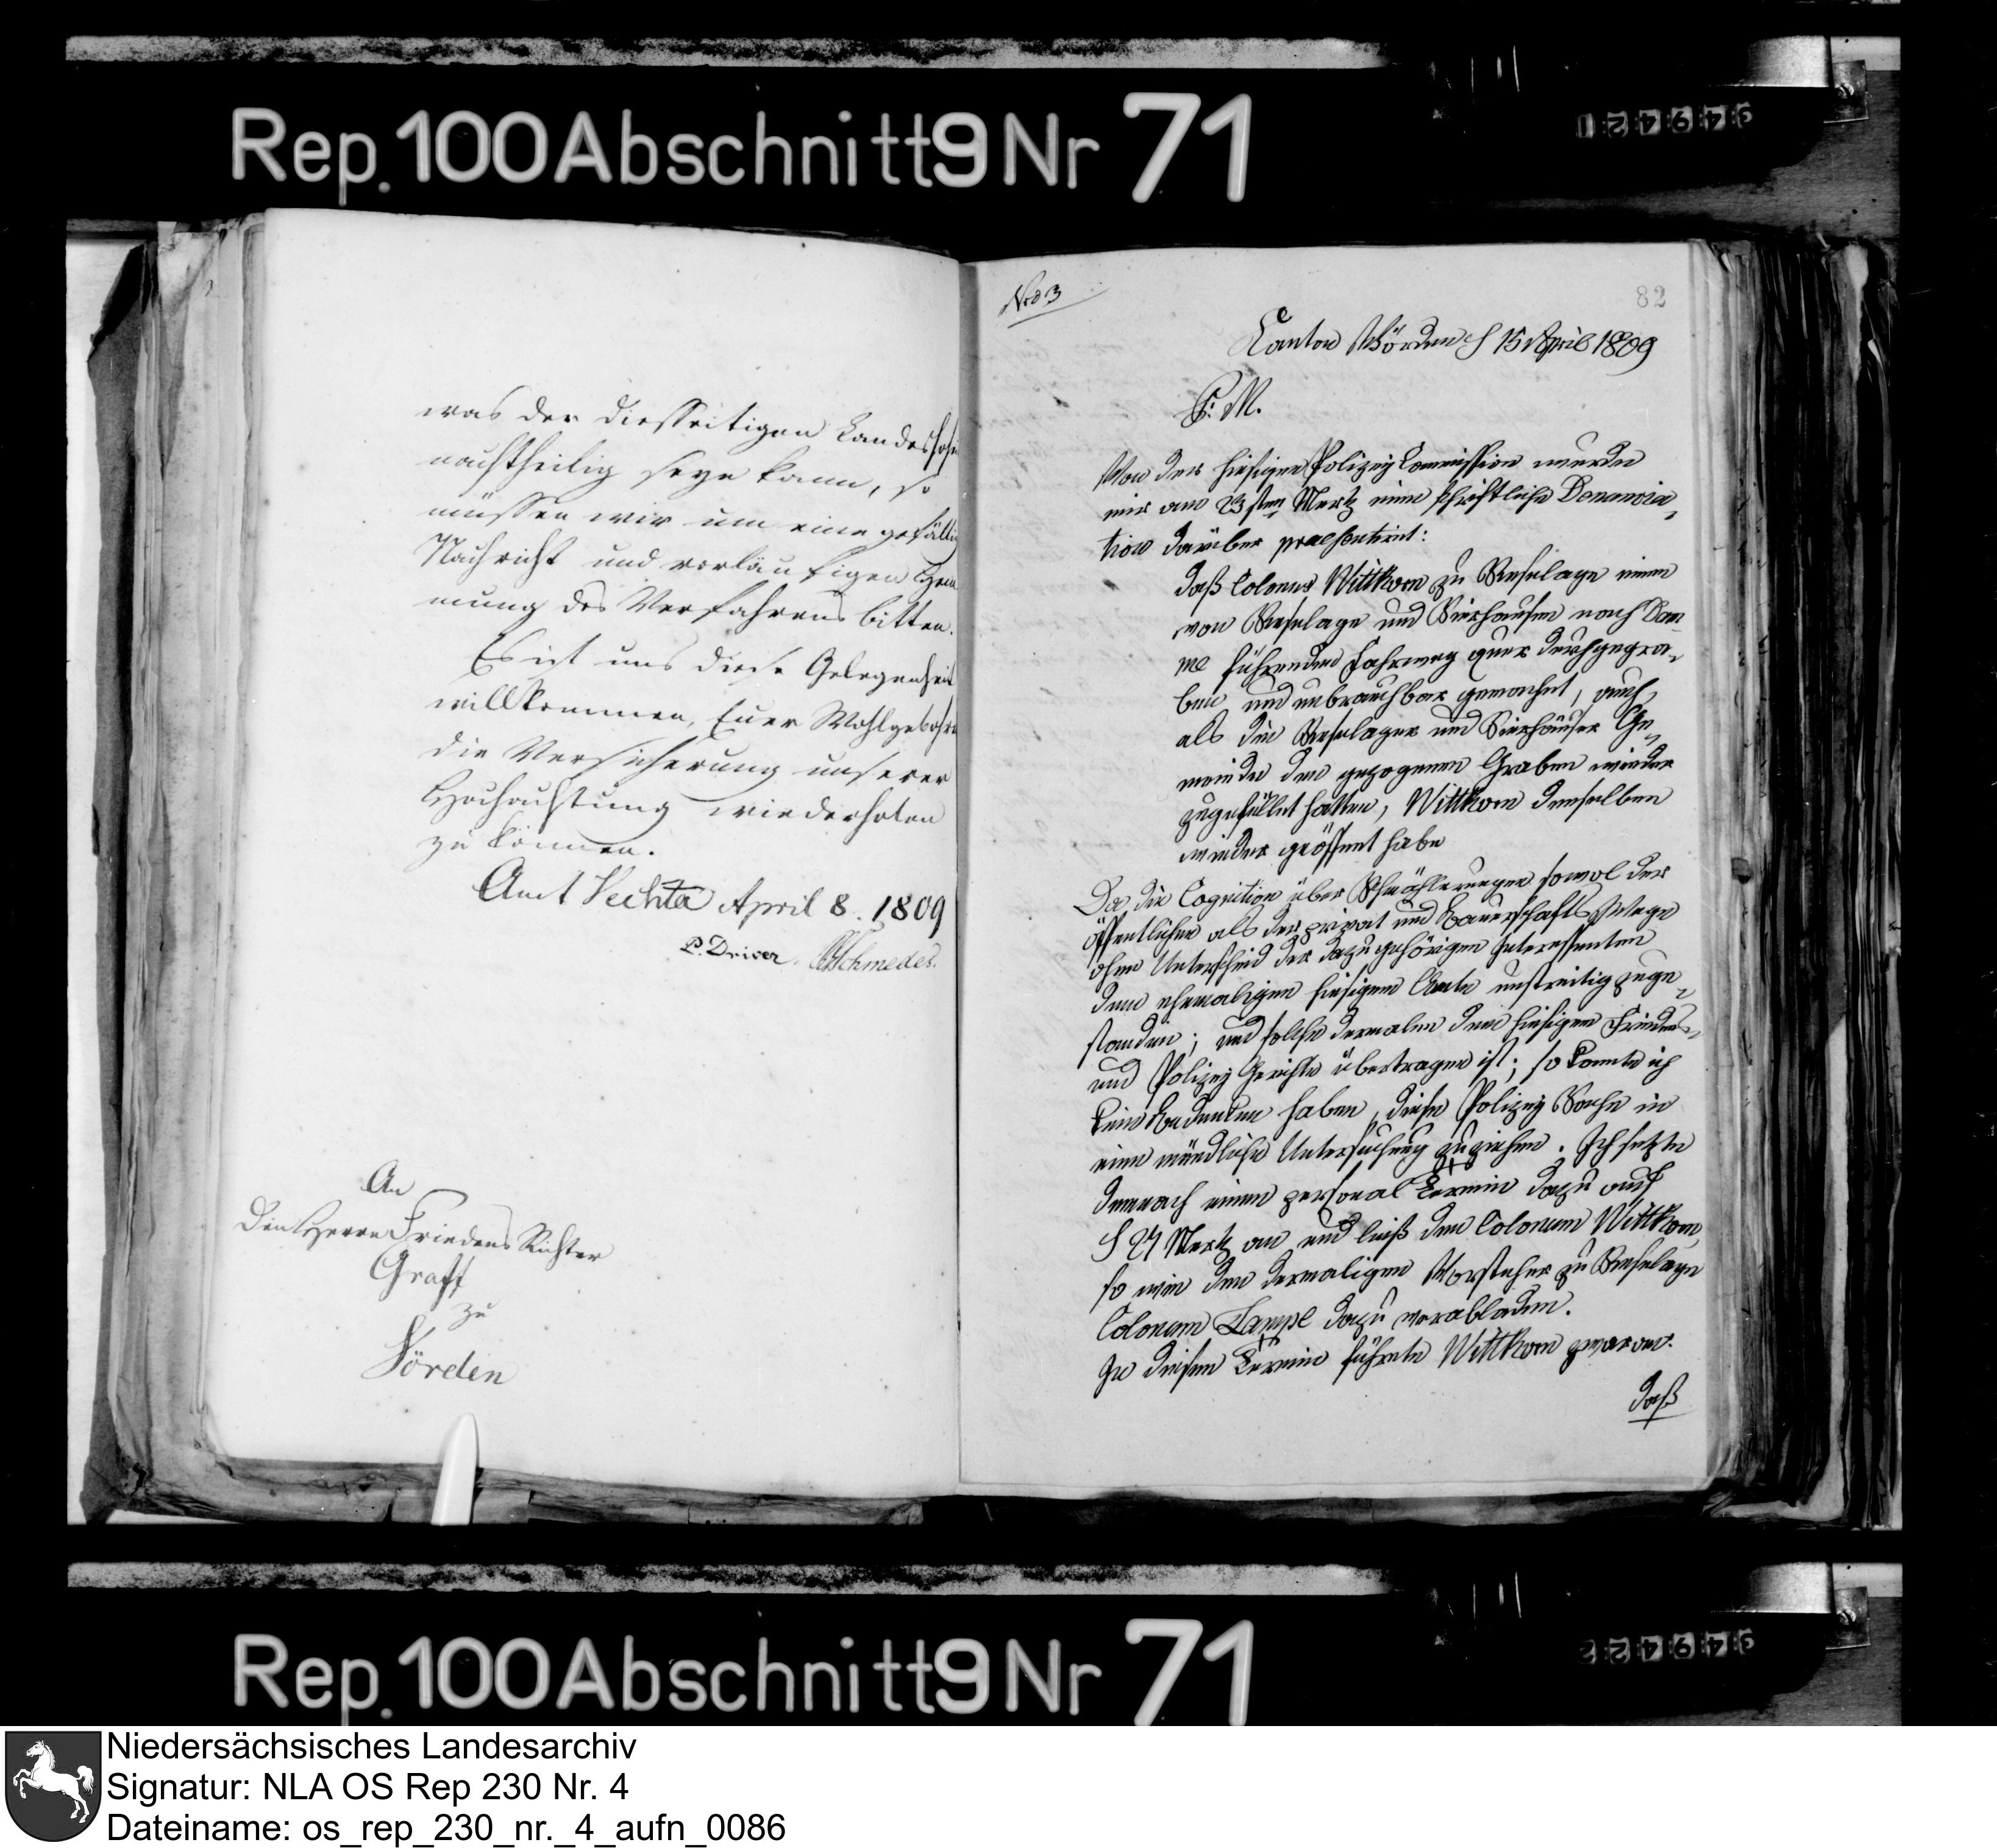 Rep. 100 Abschnitt 9 Nr 71
349421
was der diesseitigen Landeshohe
nachtheilig seyn kann, so
müssen wir um eine gefällig
Nachricht und vorläufigen Hem
mung des Verfahrens bitten.
Es ist uns diese Gelegenheit
willkommen, Euer Wohlgebohr
die Versicherung unserer
Hochachtung wiederholen
zu können.
Amt Vechta April 8. 1809
P. Driver. Schmedes.
An
den Herrn Friedens Richter
Graff
zu
Vörden
Nro 3
82
Canton Vörden d 15 April 1809
P. M.
Von der hiesigen Polizey Commission wurde
mir am 23sten Mertz eine schriftliche Denuncia
tion darüber praesentirt:
daß Colonus Wittkom zu Rieselage einen
von Rieselage und Vierhausen nach Dam
me führenden Fahrweg quer durchgegra
ben und unbrauchbar gemachet, auch,
als die Rieselager und Vierhäuser Ge
meinde den gezogenen Graben wieder
zugefüllet hätten, Wittkom denselben
wieder geöffnet habe
Da die Cognition über Schmählerungen sowol der
öffentlichen als der privat und Bauerschafts Wege
ohne Unterschied der dazu gehörigen Interessenten
dem ehemaligen hiesigen Amte unstreitig zuge
standen; und solche dermalen dem hiesigen Friedens
und Polizey Gerichte übertragen ist; so konnte ich
kein Bedenken haben, diese Polizey Sache in
eine mündliche Untersuchung zu ziehen. Ich setzte
demnach einen personal Termin dazu auf
d 27 Mertz an und ließ den Colonum Wittkom,
so wie den dermaligen Vorsteher zu Rieselage
Colonum Lampe dazu verabladen.
In diesem Termin führete Wittkom zwar an:
daß
Rep. 100 Abschnitt 9 Nr 71
349422
Niedersächsisches Landesarchiv
Signatur: NLA OS Rep 230 Nr. 4
Dateiname: os_rep_230_nr._4_aufn_0086